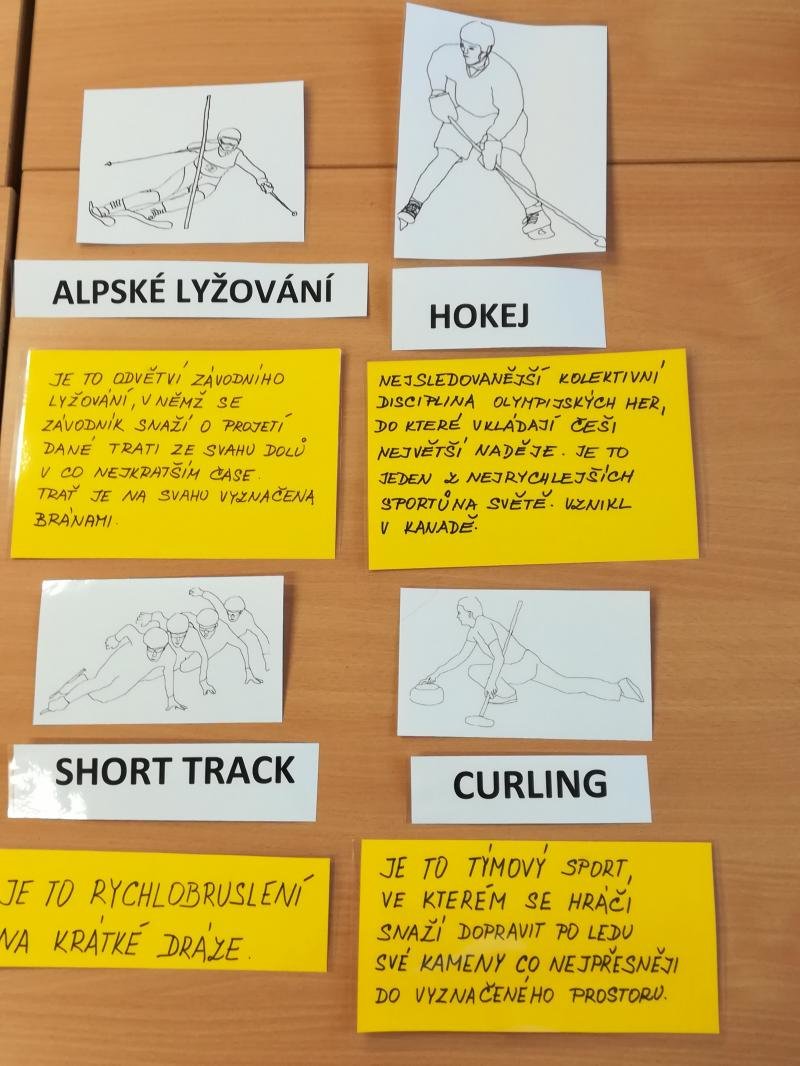 ALPSKÉ LYŽOVÁNÍ
JE TO ODVĚTVÍ ZÁVODNÍHO
LYŽOVÁNÍ, V NĚMŽ SE
ZÁVODNÍK SNAŽÍ O PROJETÍ
DANÉ TRATI ZE SVAHU DOLŮ
V CO NEJKRATŠÍM ČASE.
TRAŤ JE NA SVAHU VYZNAČENA
BRÁNAMI.
HOKEJ
NEJSLEDOVANĚJŠÍ KOLEKTIVNÍ
DISCIPLINA OLYMPIJSKÝCH HER,
DO KTERÉ VKLÁDAJÍ ČEŠI
NEJVĚTŠÍ NADĚJE. JE TO
JEDEN Z NEJRYCHLEJŠÍCH
SPORTŮ NA SVĚTĚ. VZNIKL
V KANADĚ.
SHORT TRACK
JE TO RYCHLOBRUSLENÍ
NA KRÁTKÉ DRÁZE.
CURLING
JE TO TÝMOVÝ SPORT,
VE KTERÉM SE HRÁČI
SNAŽÍ DOPRAVIT PO LEDU
SVÉ KAMENY CO NEJPŘESNĚJI
DO VYZNAČENÉHO PROSTORU.